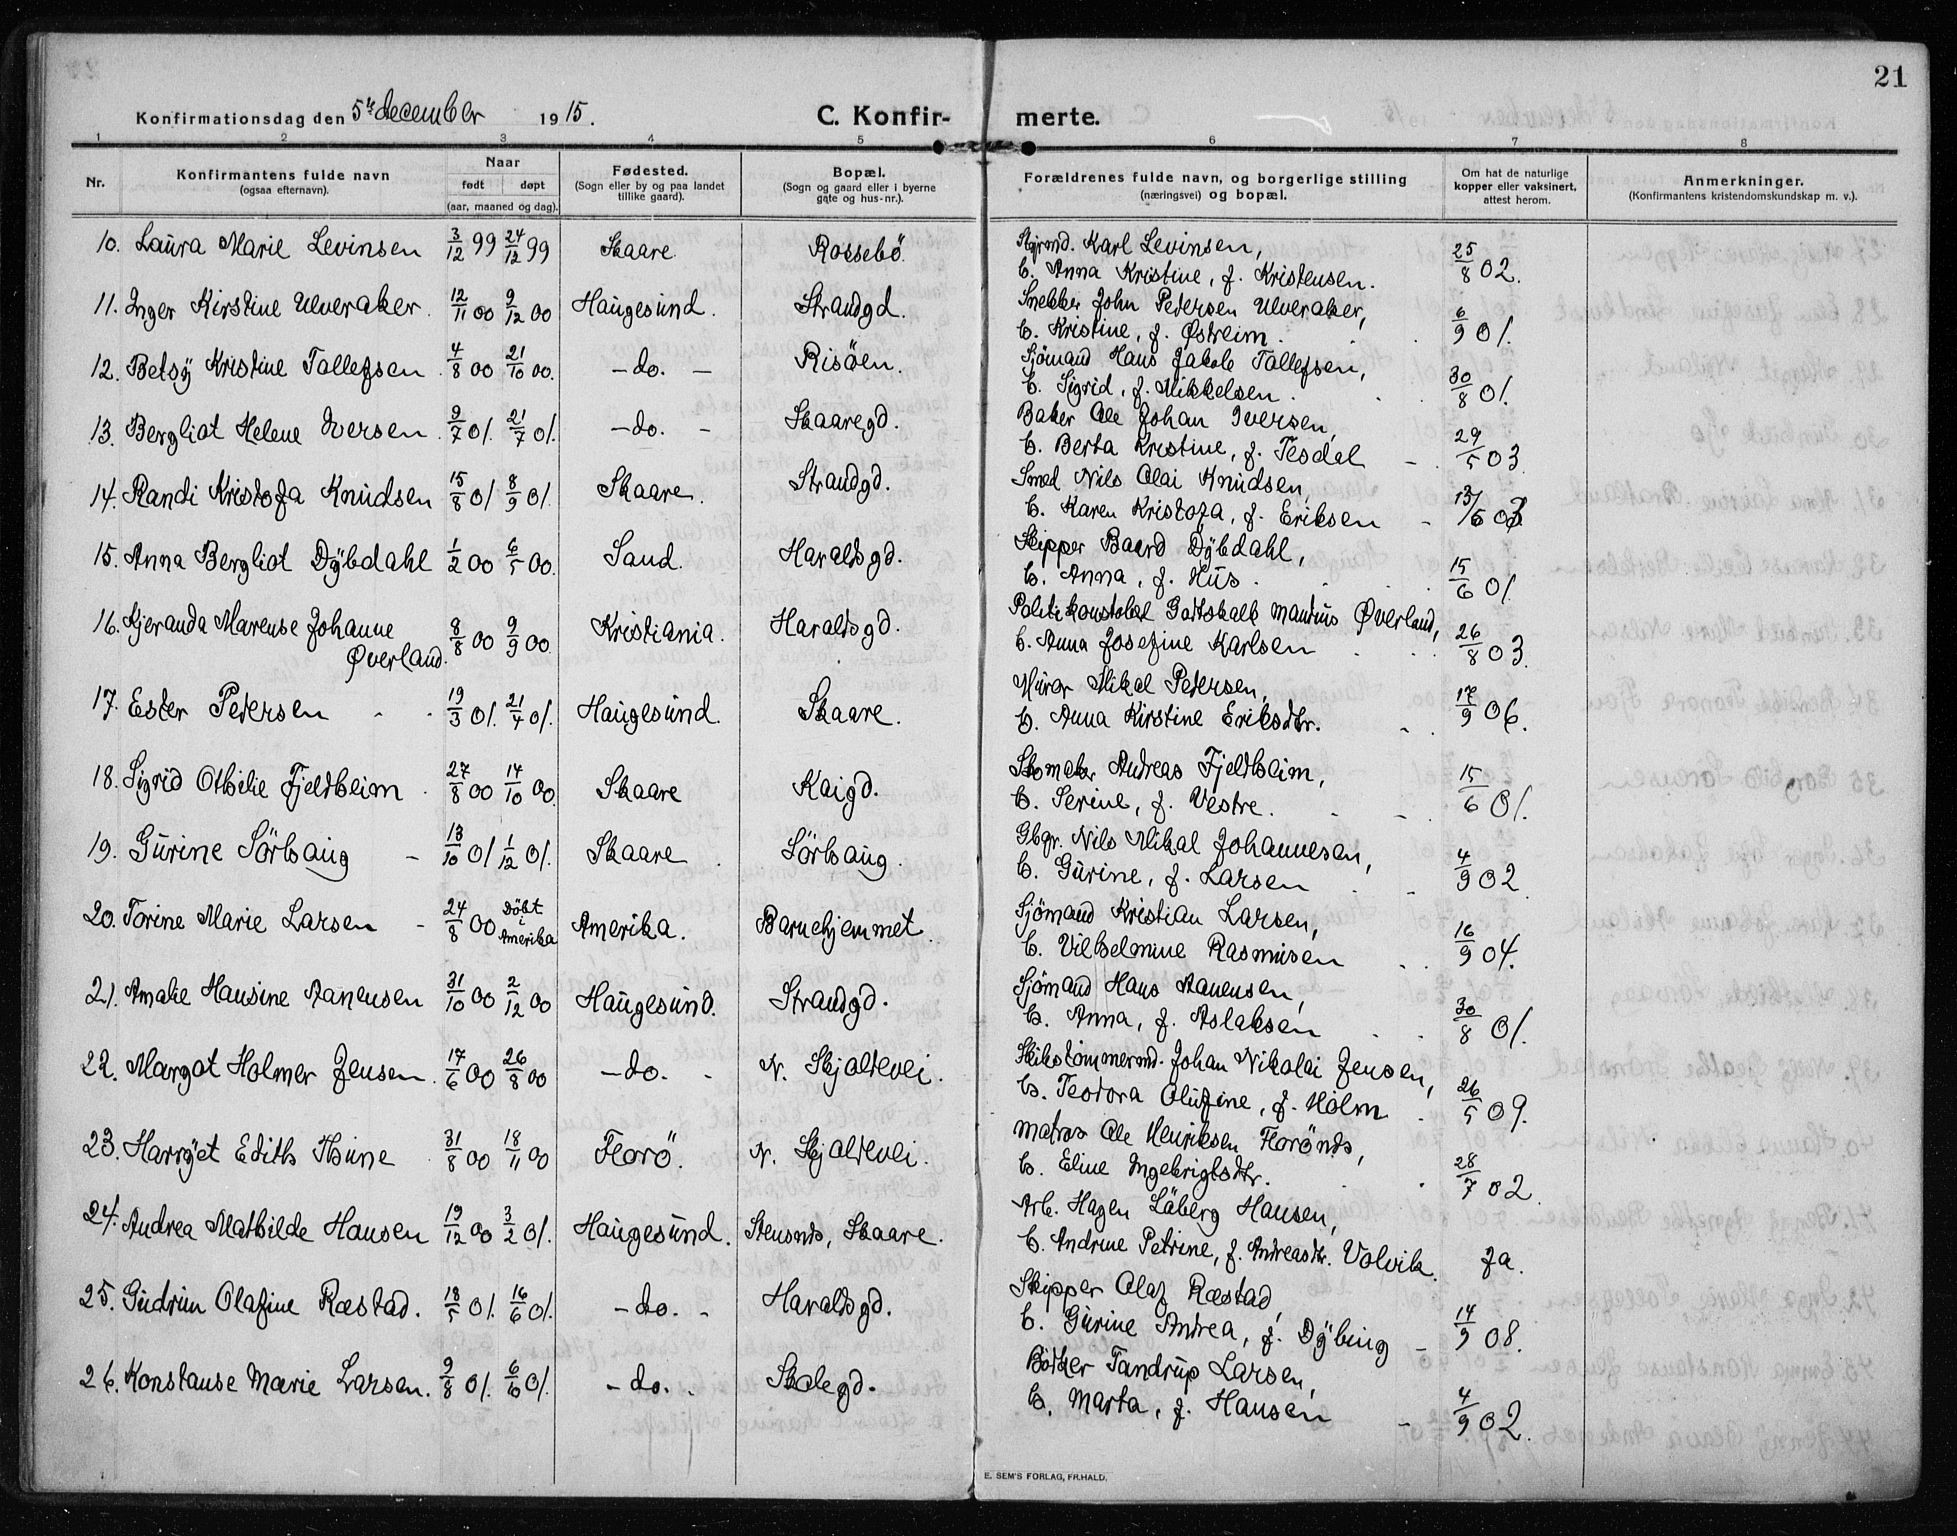 21
Konfirmationsdag den 5te december 1915.
C. Konfir- merte.
1 2 3 4 5 6 7 8
Nr.
Konfirmantens fulde navn
(ogsaa efternavn).
Naar
født døpt
(aar, maaned og dag).
Fødested.
(Sogn eller by og paa landet
tillike gaard).
Bopæl.
(Sogn og gaard eller i byerne
gate og hus-nr.).
Forældrenes fulde navn, og borgerlige stilling
(næringsvei) og bopæl.
Om hat de naturlige
kopper eller vaksinert,
attest herom.
Anmerkninger.
(Konfirmantens kristendomskundskap m. v.).
10. Laura Marie Levinsen 3/12 99 24/12 99 Skaare Rossebö. Styrmd. Karl Levinsen,
H. Anna Kristine, f. Kristensen. 25/8 02.
11. Inger Kirstine Ulveraker. 12/11 00 9/12 00 Haugesund. Strandgd. Snekker John Petersen Ulveraker,
H. Kristine, f. Østreim. 6/9 01.
12. Betsy Kristine Tallefsen. 4/8 00 21/10 00. -do.- Risöen. Sjömand Hans Jakob Tallefsen,
H. Sigrid, f. Mikkelsen. 30/8 01.
13. Bergliot Helene Iversen. 9/7 01. 21/7 01. -do.- Skaaregd. Baker Ole Johan Iversen,
H. Berta Kristine, f. Tesdal - 29/5 03.
14. Randi Kristofa Knudsen 15/8 01 8/9 01. Skaare. Strandgd. Smed Nils Olai Knudsen,
H. Karen Kristofa, f. Eriksen - 13/6 03
15. Anna Bergliot Dybdahl 1/2 00 6/5 00. Sand. Haraldsgd. Skipper Baard Dybdahl,
H. Anna, f. Hus. 15/6 01.
16. Gjeranda Marense Johanne
Øverland. 8/8 00 9/9 00. Kristiania. Haraldsgd. Politikonstabel Gottskalk Mandius Øverland,
H. Anna Josefine Karlsen 26/8 03.
17. Ester Petersen 19/3 01. 21/4 01. Haugesund. Skaare. Murer Mikal Petersen,
H. Anna Kirstine Eriksdtr. 17/9 06.
18. Sigrid Othilie Fjeldheim. 27/8 00 14/10 00. Skaare Kaigd. Skomaker Andreas Fjeldheim,
H. Serine, f. Vestre. 15/6 01.
19. Gurine Sörhaug - 13/10 01 1/12 01. Skaare. Sörhaug. Gbgr. Nils Mikal Johannesen,
H. Gurine, f. Larsen 4/9 02
20. Torine Marie Larsen - 24/8 00 Döbt i Amerika Amerika. Barnehjemmet. Sjömand Kristian Larsen,
H. Vilhelmine Rasmusen 16/9 04.
21. Amalie Hansine Aanensen 31/10 00 2/12 00 Haugesund. Strandgd. Sjömand Hans Aanensen,
H. Anna, f. Aslaksen 30/8 01.
22. Margot Holmer Jensen. 17/6 00 26/8 00 -do.- N. Skjoldevei. Skibstömmermd. Johan Nikolai Jensen,
H. Teodora Olufine, f. Holm. 26/5 09.
23. Harryet Edith Thune 31/8 00 18/11 00 Florö. N. Skjoldevei. Matros Ole Henriksen Florönds,
H. Eline Ingebrigtsdtr. 28/7 02.
24. Andrea Mathilde Hansen 19/12 00 3/2 01. Haugesund. Stensnds, Skaare. Arb. Hagen Löberg Hansen,
H. Andrine Petrine, f. Andreasdtr. Valvik. ja.
25. Gudrun Olafine Røstad. 18/5 01. 16/6 01. -do.- Haraldsgd. Skipper Olaf Røstad,
H. Gurine Andrea, f. Dybing - 14/9 08.
26. Konstanse Marie Larsen. 9/8 01. 6/10 01. -do.- Skolegd. Bötker Tandrup Larsen,
H. Marta, f. Hansen - 4/9 02.
E. SEM'S FORLAG, FR.HALD.